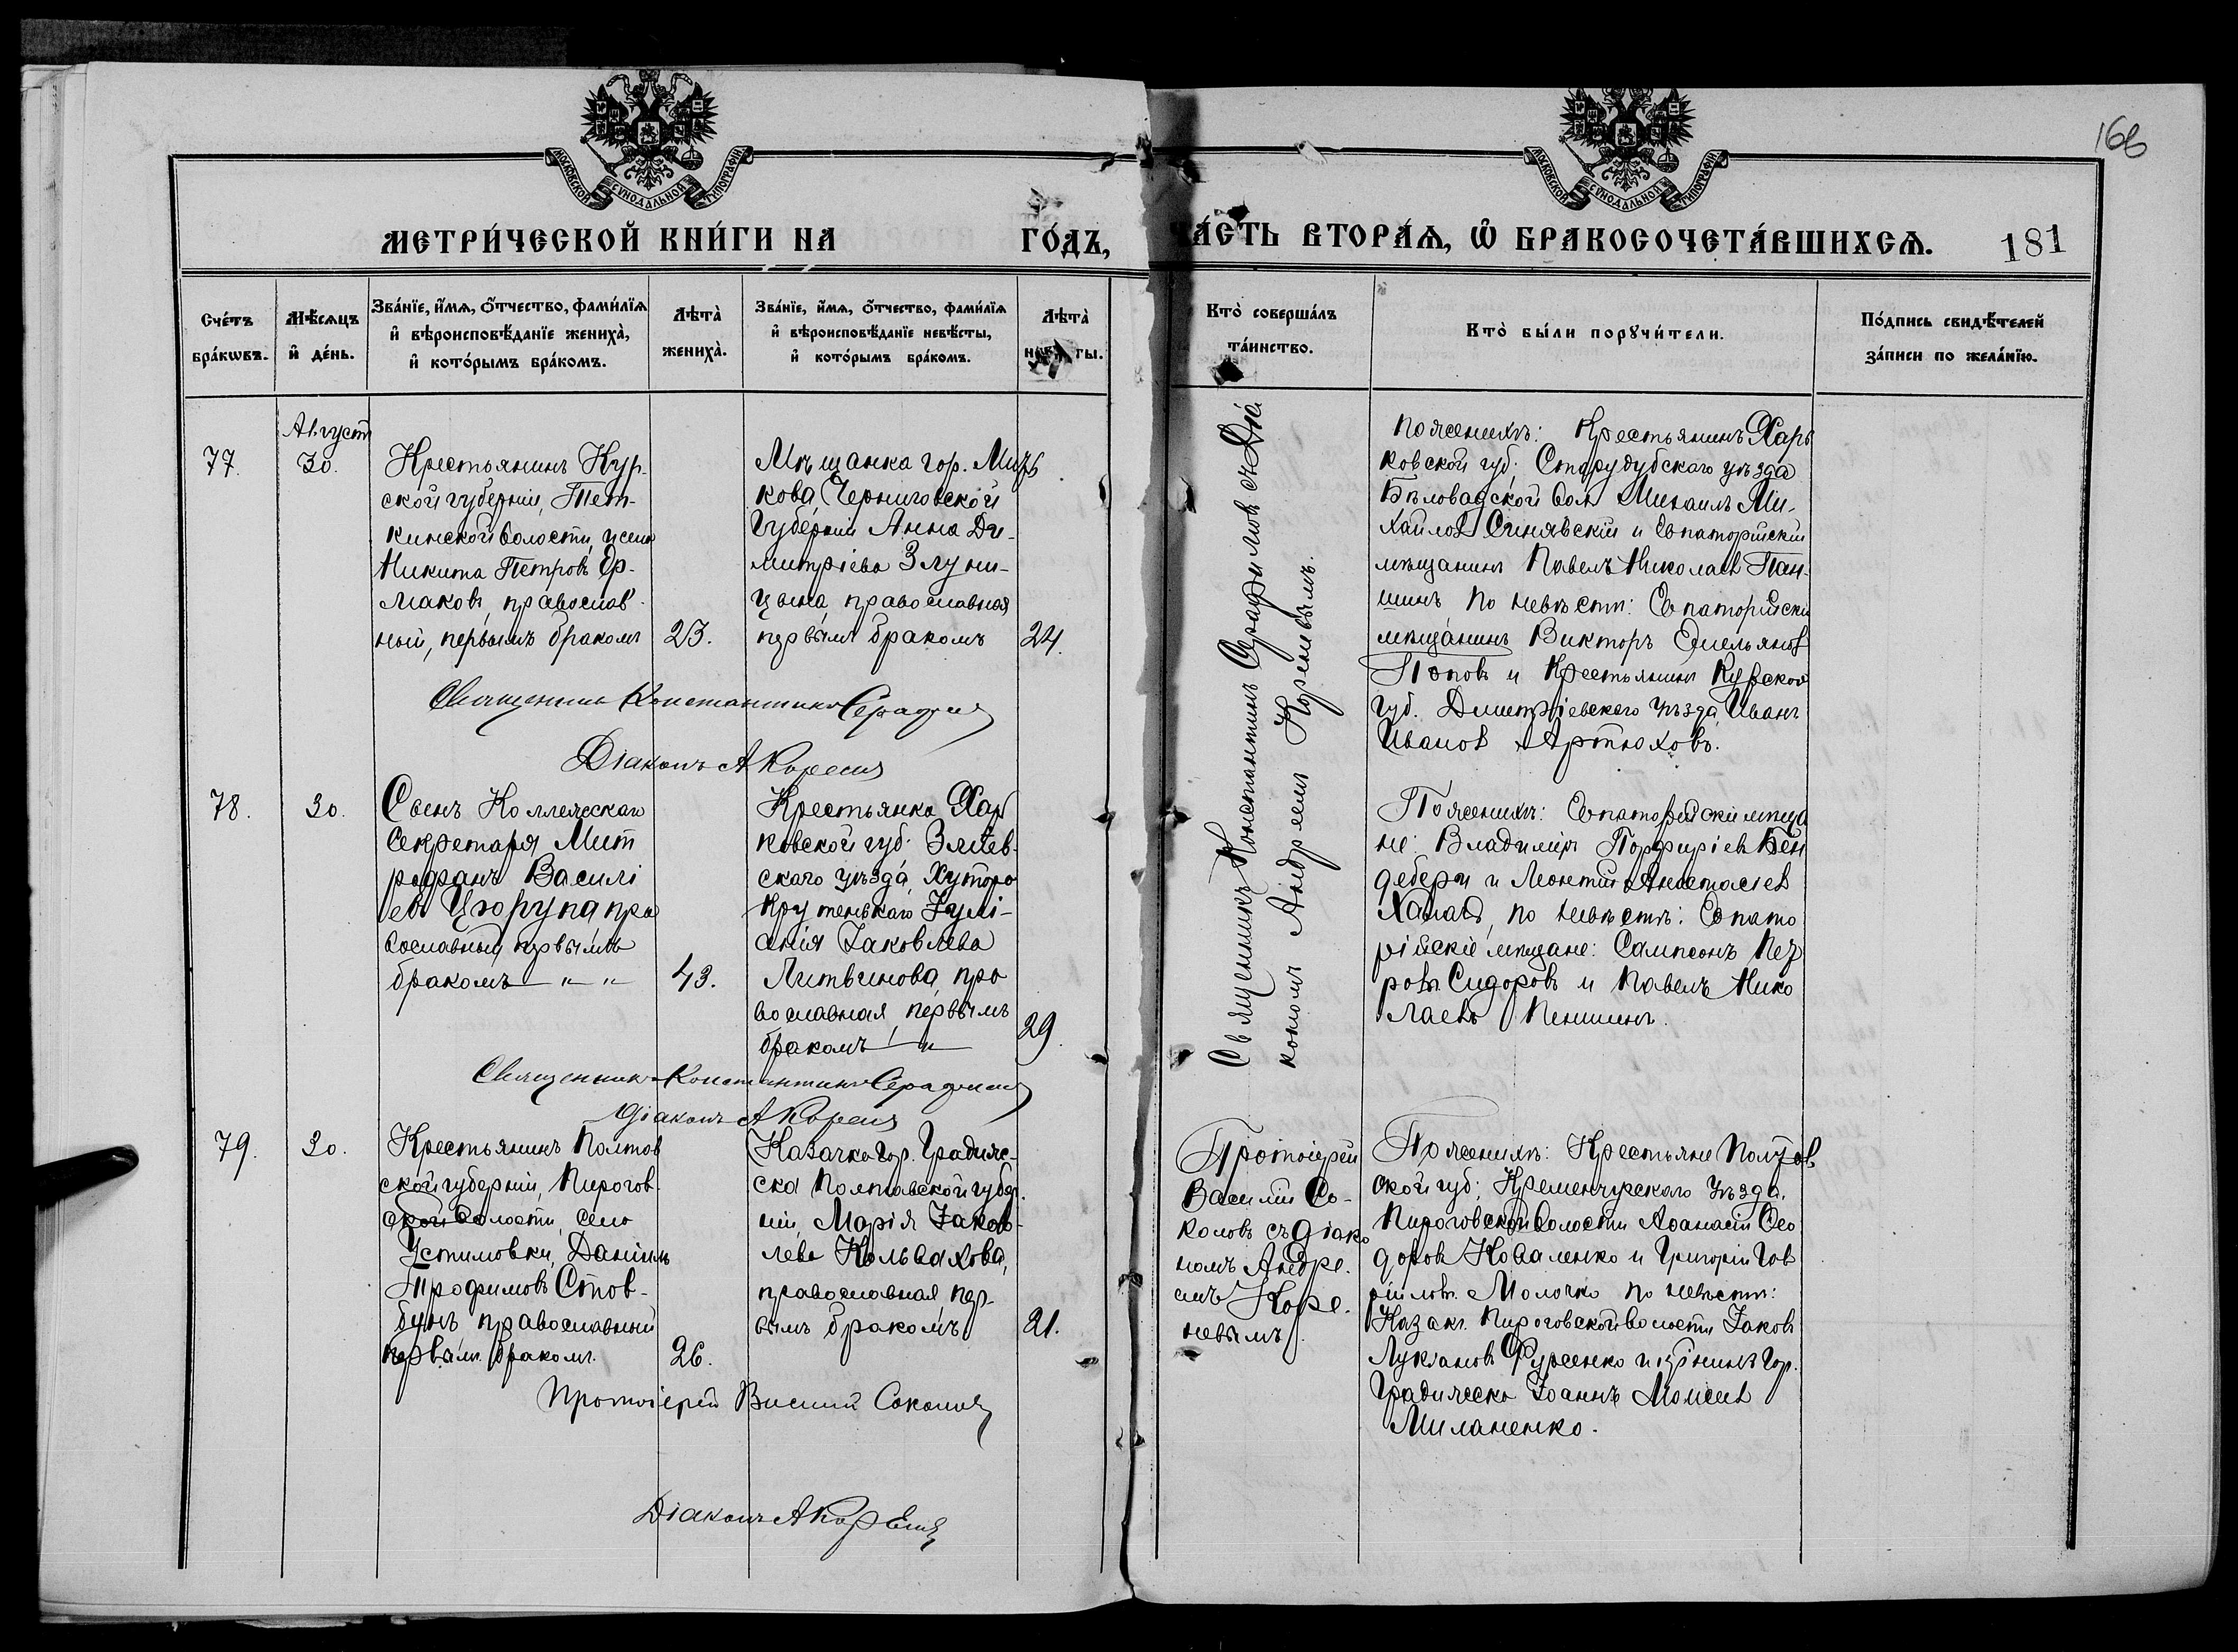 МОСКОВСКОЙ СѴНОДАЛЬНОЙ ТИПОГРАФІИ
МОСКОВСКОЙ СѴНОДАЛЬНОЙ ТИПОГРАФІИ
166
МЕТРИ́ЧЕСКОЙ КНИ́ГИ НА ГО́ДЪ,
ЧА́СТЬ ВТОРА́Ѧ, Ѡ҆ БРАКОСОЧЕТА́ВШИХСѦ.
181
Сче́тъ
бра́кѡвъ.
Мѣ́сѧцъ
и҆ де́нь.
Зва́нїе, и҆́мѧ, о҆́тчество, фами́лїѧ
и҆ вѣроисповѣ́данїе жениха̀,
и҆ кото́рымъ бра́комъ.
Лѣта̀
жениха̀.
Зва́нїе, и҆́мѧ, о҆́тчество, фами́лїѧ
и҆ вѣроисповѣ́данїе невѣ́сты,
и҆ кото́рымъ бра́комъ.
Лѣта̀
невѣ́сты.
Кто̀ соверша́лъ
та́инство.
Кто̀ бы́ли порꙋчи́тели.
По́дпись свидѣ́телей
за́писи по жела́нїю.
77.
Август
30.
Крестьянинъ Кур-
ской губерніи, Тет-
кинской волости, и села
Никита Петровъ Ер-
маковъ, православ-
ный, первымъ бракомъ
23.
Мѣщанка гор. Мгль
кова, Черниговской
Губерніи Анна Ди-
митріева Злуни-
цына, православная
первымъ бракомъ
24.
Священникъ Константинъ Серафим
Діаконъ А Корен
Священникъ Константинъ Серафимовъ съ Діа
кономъ Андреемъ Кореневымъ.
По женихѣ: Крестьянинъ Харь
ковской губ. Старудубскаго уѣзда
Бѣловадской вол. Михаилъ Ми-
хайловъ Синявскій и Евпаторійскій
мѣщанинъ Павелъ Николаевъ Пан-
шинъ по невѣстѣ: Евпаторійскій
мѣщанинъ Викторъ Емельяновъ
Поповъ и Крестьянинъ Курской
губ. Дмитріевскаго уѣзда, Иванъ
Ивановъ Артюховъ.
78.
30.
Сынъ Коллежскаго
Секретаря Мит
рофанъ Василі
евъ Цюрупа пра
вославный первымъ
бракомъ — " — "
43.
Крестьянка Хар
ковской губ. Зміев-
скаго уѣзда, Хутора
Крутенькаго Іулі-
анія Іаковлева
Литвинова, пра
вославная, первымъ
бракомъ — "
29.
Священникъ Константинъ Серафим
Діаконъ А Корен
По женихѣ: Евпаторійскіе мѣща
не: Владиміръ Порфиріевъ Бен
дебери и Леонтій Анастасіев
Халаев, по невѣстѣ: Евпато
рійскіе мѣщане: Сампсонъ Пет
ровъ Сидоровъ и Павелъ Нико
лаевъ Пеншинъ.
79.
30.
Крестьянинъ Полтов
ской губерніи, Пирогов-
ской волости, села
Устимовки, Даніилъ
Трофимовъ Стов-
бунъ православный
первымъ бракомъ.
26.
Казачка гор. Градиж-
ска Полтавской губер-
ніи, Марія Іаков-
лева Кольвахова,
православная, пер-
вымъ бракомъ
21.
Протоіерей Василій Соколов
Діаконъ А Корен
Протоіерей
Василій Со-
коловъ съ діако
номъ Андре-
емъ Коре-
невымъ.
По женихѣ: Крестьяне Полтов
ской губ. Кременчугскаго уѣзда.
Пироговской волости Аѳанасій Ѳео
доровъ Коваленко и Григорій Гав
рііловъ Молочко по невѣстѣ:
Казакъ Пироговской волости Іаковъ
Лукіановъ Фурсенко и мѣщнинъ гор.
Градижска Іоаннъ Моисеев
Миланенко.